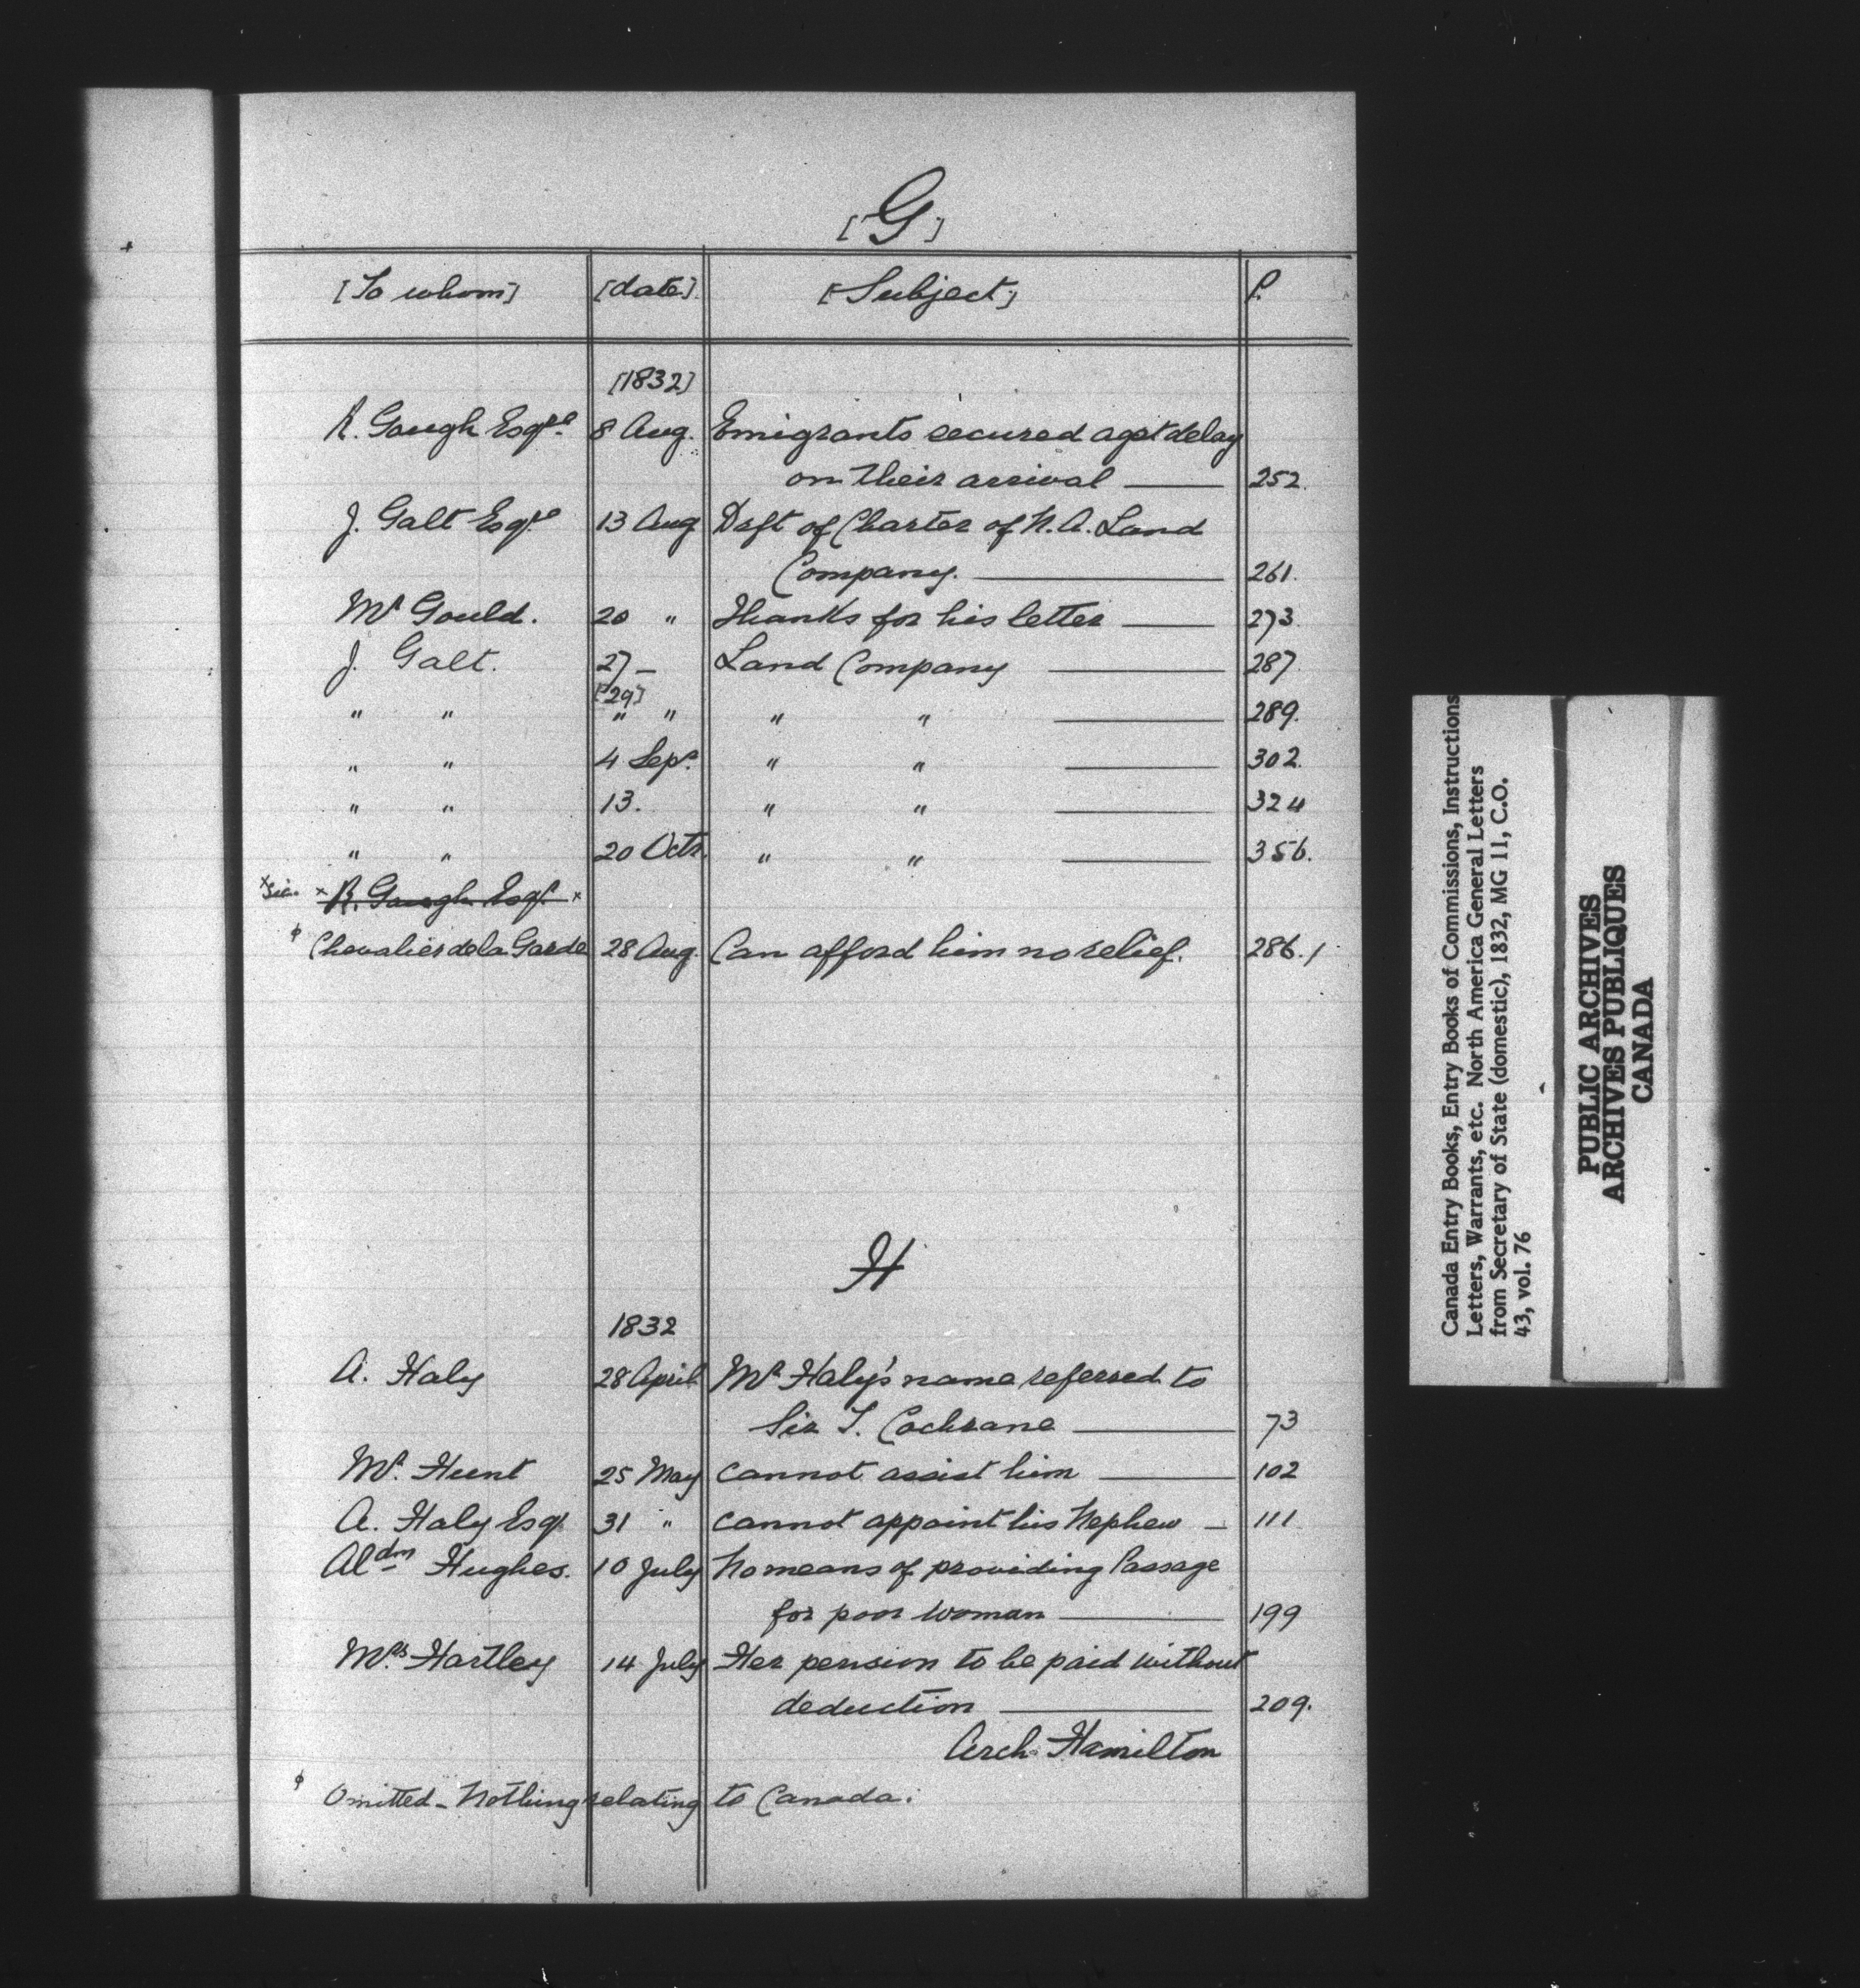 [G]
[To whom] [date] [Subject] P.
[1832]
R. Gough Esqre. 8 Aug. Emigrants secured agst delay
on their arrival — 252.
J. Galt Esqre 13 Aug Drft of Charter of N. A. Land
Company. — 261.
Mr Gould. 20 " Thanks for his letter — 273.
J. Galt. 27 – Land Company — 287.
[29]
" " " " " " — 289.
" " 4 Sepr. " " — 302.
" " 13. " " — 324
" " 20 Octr. " " — 356.
x sic. x R. Gough Esqr. x
φ Chevalier de la Garde 28 Aug. Can afford him no relief. 286.1
H
1832
A. Haly 28 April Mr Haly's name referred to
Sir T. Cochrane — 73
Mr. Hunt 25 May cannot assist him — 102
A. Haly Esqr. 31 " cannot appoint his Nephew – 111
Aldm Hughes. 10 July No means of providing Passage
for poor woman — 199
Mrs. Hartley 14 July Her pension to be paid without
deduction — 209.
Arch. Hamilton
φ Omitted – Nothing relating to Canada.
Canada Entry Books, Entry Books of Commissions, Instructions
Letters, Warrants, etc. North America General Letters
from Secretary of State (domestic), 1832, MG 11, C.O.
43, vol. 76
PUBLIC ARCHIVES
ARCHIVES PUBLIQUES
CANADA